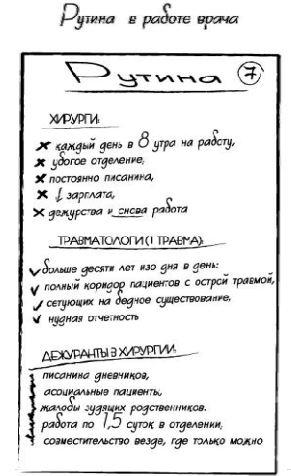 Рутина в работе врача
Рутина 7
ХИРУРГИ:
каждый день в 8 утра на работу,
убогое отделение,
постоянно писанина,
↓ зарплата,
дежурства и снова работа
ТРАВМАТОЛОГИ (1 ТРАВМА):
больше десяти лет изо дня в день:
полный коридор пациентов с острой травмой,
сетующих на бедное существование,
нудная отчетность
ДЕЖУРАНТЫ В ХИРУРГИИ:
писанина дневников,
асоциальные пациенты,
жалобы зудящих родственников.
работа по 1,5 суток в отделении,
совместительство везде, где только можно